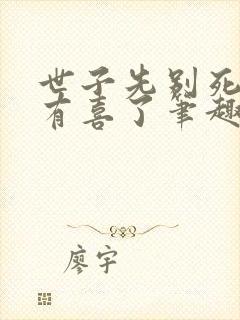 世子先别死
有喜了笔趣
廖宇